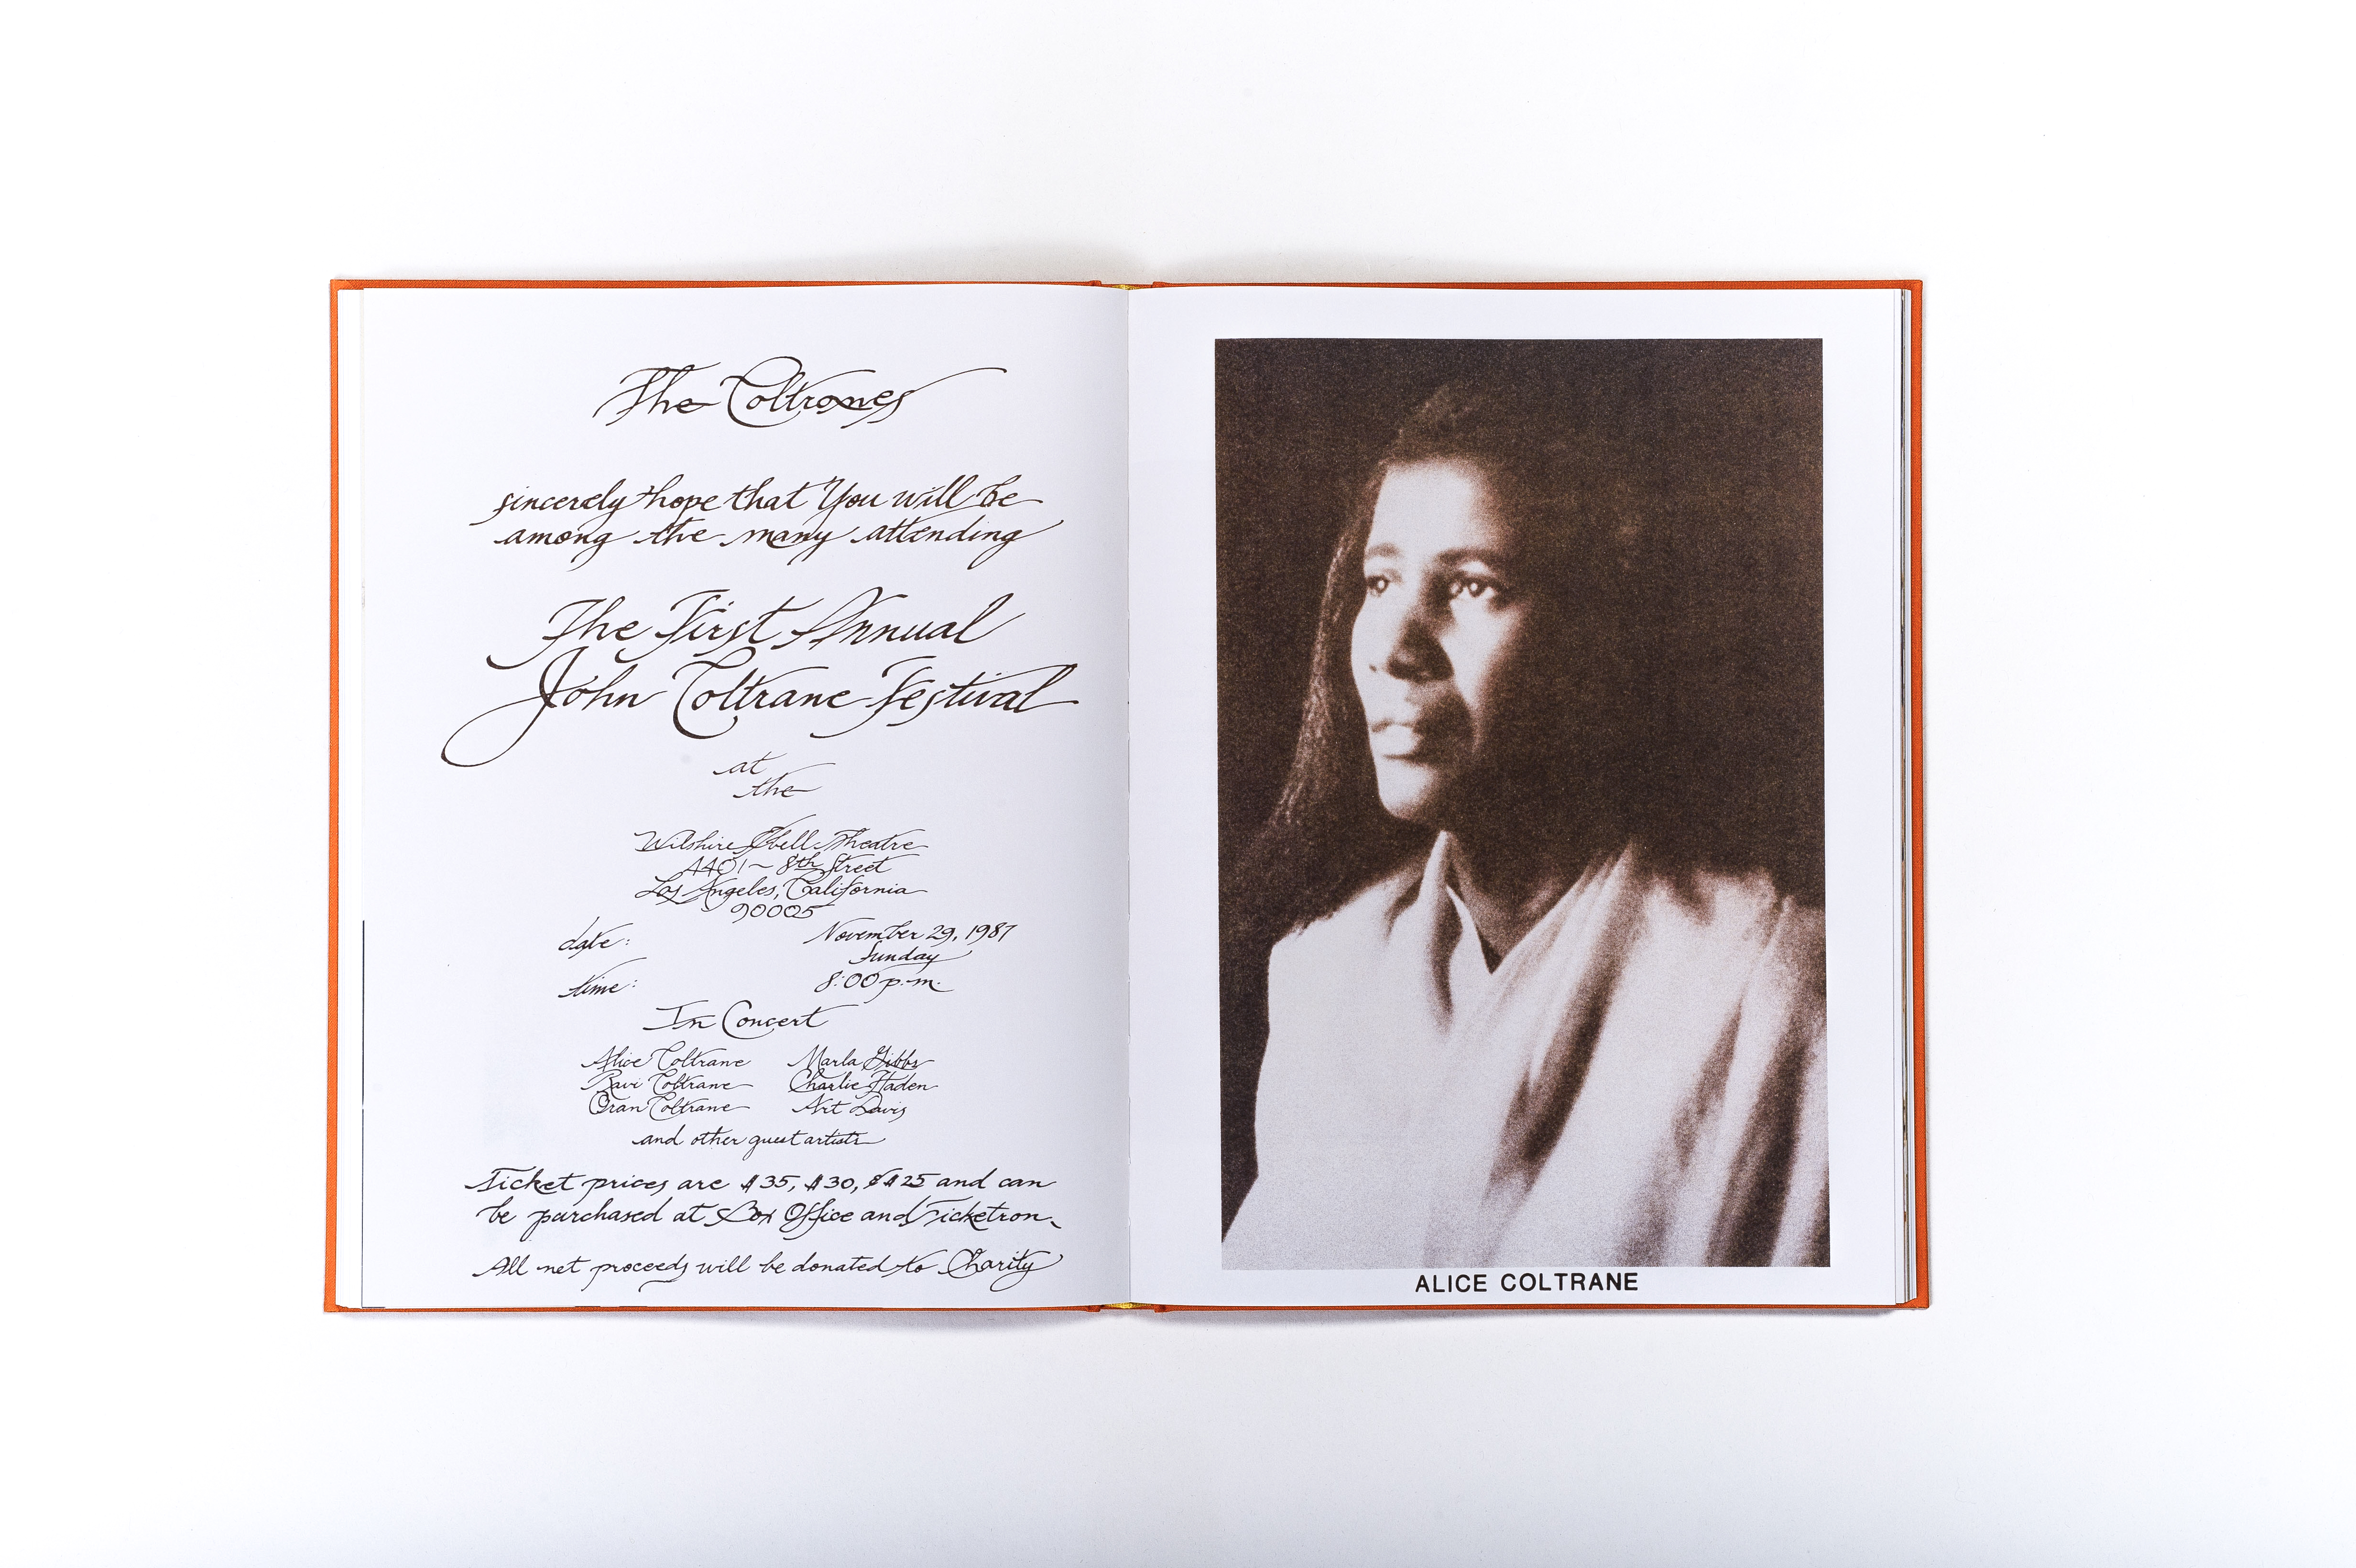 The Coltranes
sincerely hope that You will be
among the many attending
The First Annual
John Coltrane Festival
at
the
Wilshire Ebell Theatre
4401 ~ 8th Street
Los Angeles, California
90005
date: November 29, 1987
Sunday
time: 8:00 p.m.
In Concert
Alice Coltrane Marla Gibbs
Ravi Coltrane Charlie Haden
Oran Coltrane Art Davis
and other guest artists
Ticket prices are $35, $30, & $25 and can
be purchased at Box Office and Ticketron.
All net proceeds will be donated to Charity
ALICE COLTRANE